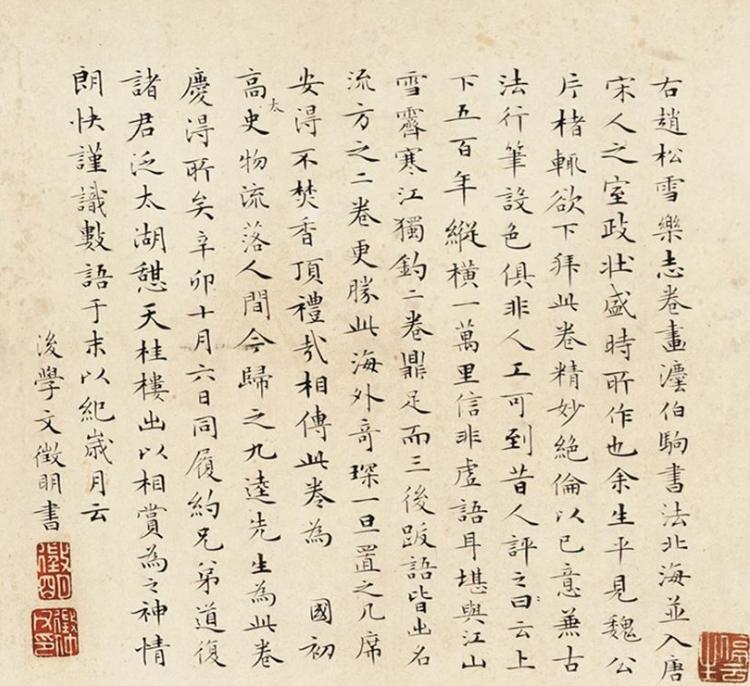 右趙松雪樂志卷畫灋伯駒書法北海並入唐
宋人之室政壯盛時所作也余生平見魏公
片楮輒欲下拜此卷精妙絕倫以已意兼古
法行筆設色俱非人工可到昔人評之曰云上
下五百年縱橫一萬里信非虛語耳堪與江山
雪霽寒江獨釣二卷鼎足而三後跋語皆出名
流方之二卷更勝此海外奇琛一旦置之几席
安得不焚香頂禮哉相傳此卷為 國初
高太史物流落人間今歸之九逵先生為此卷
慶得所矣辛卯十月六日同履約兄弟道復
諸君泛太湖憇天桂樓出以相賞為之神情
朗快謹識數語于末以紀歲月云
後學文徵明書
徵明